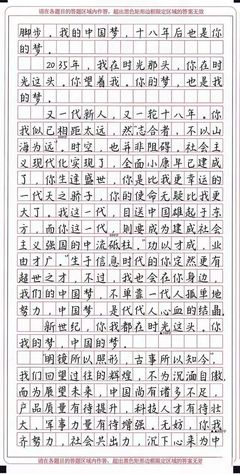 请在各题目的答题区域内作答，超出黑色矩形边框限定区域的答案无效
脚步，我的中国梦，十八年后也是你
的梦。
2035年，我在时光那头，你在时
光这头。你望着我，你的梦，也是我
的梦。
又一代新人，又一轮十八年。你
我似已相距太远，然“志合者，不以山
海为远”。时空，也并非阻碍。社会主
义现代化实现了，全面小康早已建成
了，你生逢盛世，你是比我更幸运的
一代天之骄子，你的使命无疑比我更
大了。我这一代，目送中国雄起于东
方，而你这一代，则要成为建成社会
主义强国的中流砥柱。“功以才成，业
由才广。”生于信息时代的你定然更有
超世之才，不过，我也会在你身边，
我们的中国梦，不单靠一代人孤单地
努力，中国梦，是代代人心血的结晶。
新世纪，你我都在时光这头。你
我的梦，中国的梦。
“明镜所以照形，古事所以知今”，
我们回望过往的辉煌，不为沉湎自傲，
而为展望未来，中国尚有诸多不足，
产品质量有待提升，科技人才有待壮
大，军事力量有待增强，无妨，你我
齐努力，社会共出力，沉下心来为中
请在各题目的答题区域内作答，超出黑色矩形边框限定区域的答案无效